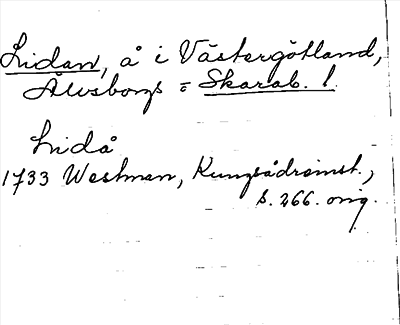 Lidan, å i Västergötland,
Älvsborgs = Skarab. l.
Lidå
1733 Westman, Kungsådreinst.,
s. 266. orig.